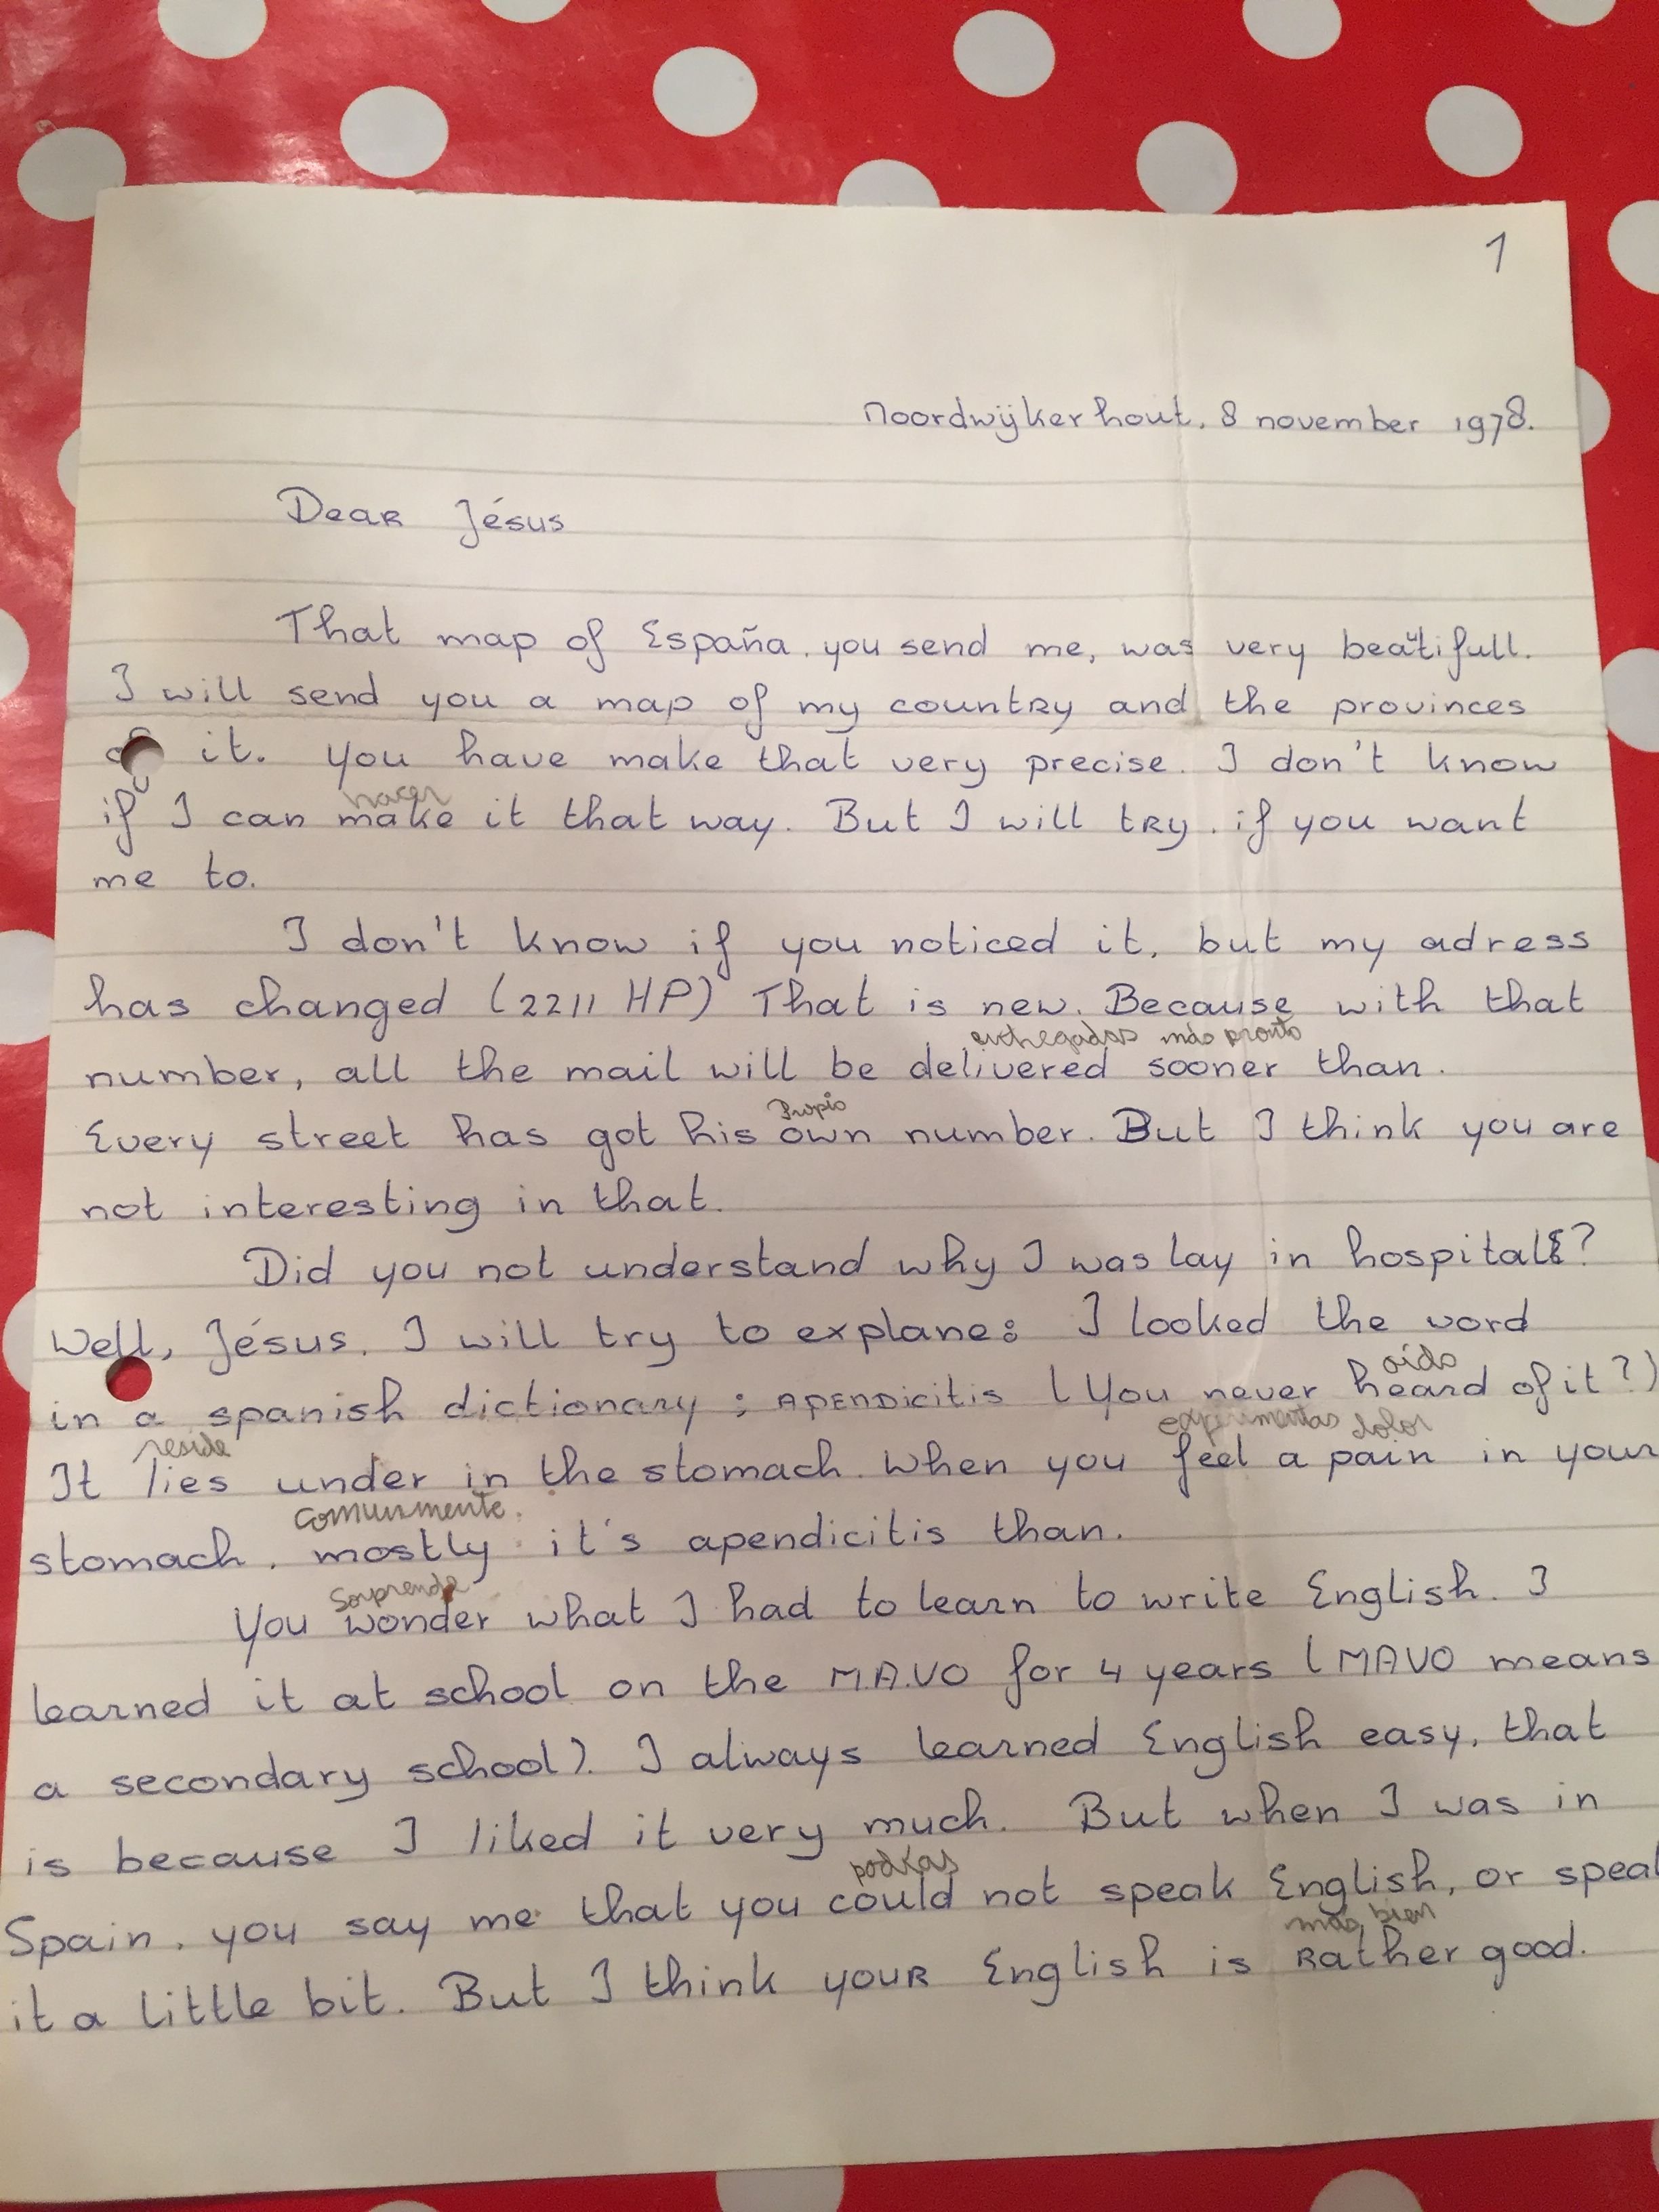 1
Noordwijkerhout, 8 november 1978.
Dear Jésus
That map of España, you send me, was very beautifull.
I will send you a map of my country and the provinces
of it. You have make that very precise. I don't know
hacer
if I can make it that way. But I will try, if you want
me to.
I don't know if you noticed it, but my adress
has changed (2211 HP) That is new. Because with that
entregadas más pronto
number, all the mail will be delivered sooner than.
Propio
Every street has got his own number. But I think you are
not interesting in that.
Did you not understand why I was lay in hospital?
Well, Jésus, I will try to explane: I looked the word
oído
in a spanish dictionary; APENDICITIS (You never heard of it?)
reside experimentas dolor
It lies under in the stomach. When you feel a pain in your
comunmente.
stomach, mostly it's apendicitis than.
Sorprende
You wonder what I had to learn to write English. I
learned it at school on the M.A.VO for 4 years (MAVO means
a secondary school). I always learned English easy, that
is because I liked it very much. But when I was in
podías
Spain, you say me that you could not speak English, or speak
más bien
it a little bit. But I think your English is Rather good.